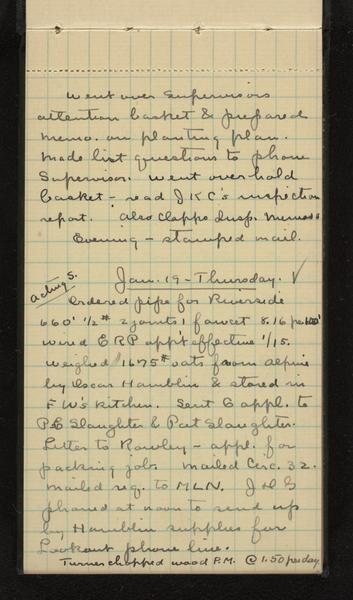 Went over Supervisors
attention basket & prepared
memo. on planting plan.
Made list questions to phone
Supervisor. Went over hold
basket - read J K C's inspection
report. Also Clapps Insp. Memo
Evening - stamped mail.
acting S.
Jan. 19 - Thursday. √
Ordered pipe for Riverside
660' 1/2" 2 joints 1 faucet 8.16 per 100'
wired E R P app't effective 1/15.
Weighed 1675# oats from Alpine
by Oscar Hamblin & stored in
F W's kitchen. Sent G appl. to
P E Slaughter & Pat Slaughter.
Letter to Rowley - appl. for
packing job. Mailed Circ. 32.
Mailed req. to MLN. J D G
phoned at noon to send up
by Hamblin supplies for
Lookout phone line.
Turner chopped wood P.M. @ 1.50 per day